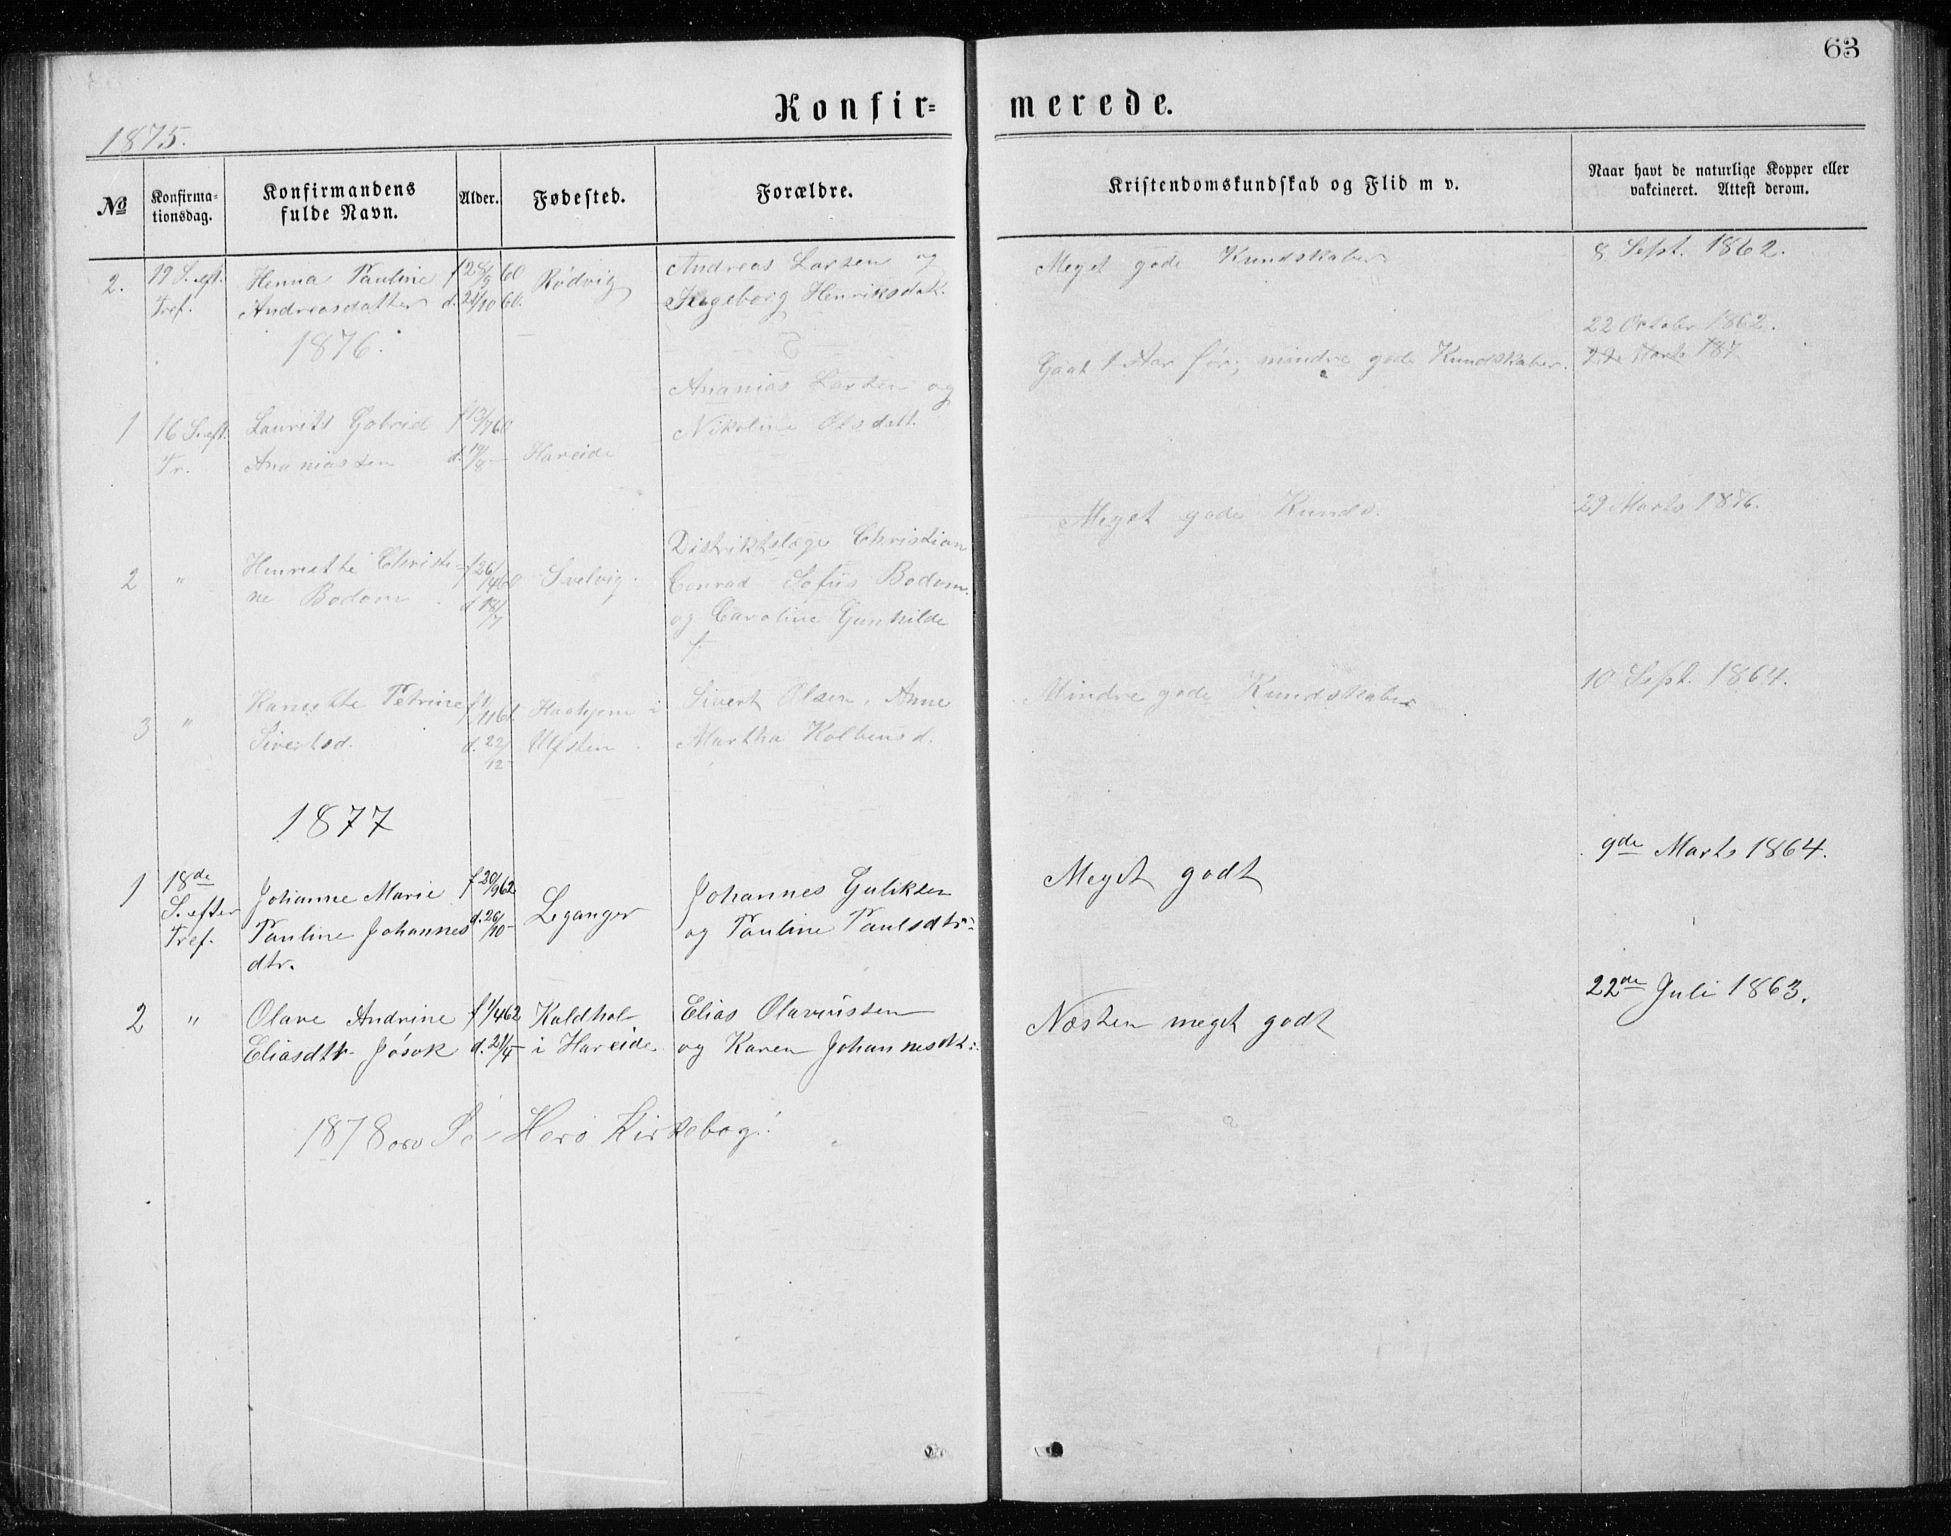 63
Konfir-
merede.
1875.
№
Konfirma-
tionsdag.
Konfirmandens
fulde Navn.
Alder.
Fødested.
Forældre.
Kristendomskundskab og Flid m v.
Naar havt de naturlige Kopper eller
vakcineret. Attest derom.
2. 19 S. eft. Henna Pauline f 28/9 60 Rødvig Andreas Larsen og Meget gode Kundskaber 8 Sept. 1862.
Tref. Andreasdatter d. 21/10 60. Ingeborg Henriksdat.
1876.
22 October 1862.
Gaat 1 Aar før; mindre gode Kundskaber. 29 Marts 187
Ananias Larsen og
1 16 S. eft. Laurits Gabriel f 13/7 60 Nikoline Olsdatt.
Tr. Ananiassen d. 19/8 - Hareide
Meget gode Kunds. 29 Marts 1876.
Distriktslæge Christian
2 " Henriette Christi- f 26/4 60 Svelvig. Conrad Sofus Bodom
ne Bodom. d 18/7 og Caroline Gunhilde
f.
3 " Hansette Petrine f 1/11 61 Haahjem i Sivert Olsen, Anne Mindre gode Kundskaber 10 Sept. 1864.
Sivertsd. d. 22/12 - Ulfsten. Martha Kolbensd.
1877
1 18de Johanne Marie f 20/9 62 Leganger Johannes Guliksen Meget godt 9de Marts 1864.
S. efter Pauline Johannes d. 26/10 - og Pauline Paulsdtr:
Tref. dtr.
2 " Olave Andrine f 1/4 62 Kaldhol Elias Olavussen Næsten meget godt 22de Juli 1863.
Eliasdtr. Jøsok d. 21/4 - i Hareide og Karen Johannesdt:
1878 osv Se Herø Kirkebog!